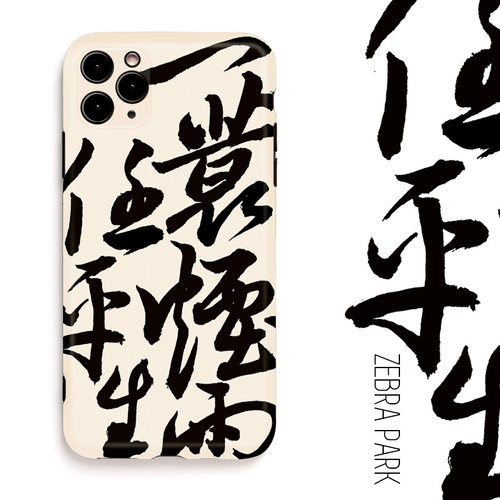 一蓑煙雨
任平生
任平生
ZEBRA PARK